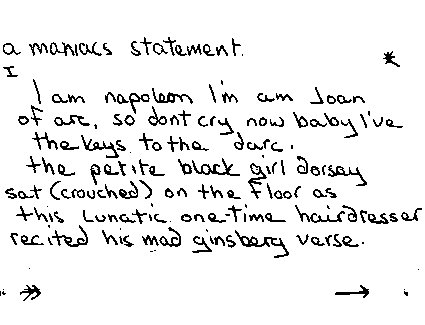 a maniacs statement.
I
I am napoleon I'm am Joan
of arc, so dont cry now baby I've
the keys to the darc.
the petite black girl dorsay
sat (crouched) on the floor as
this Lunatic one-time hairdresser
recited his mad ginsberg verse.